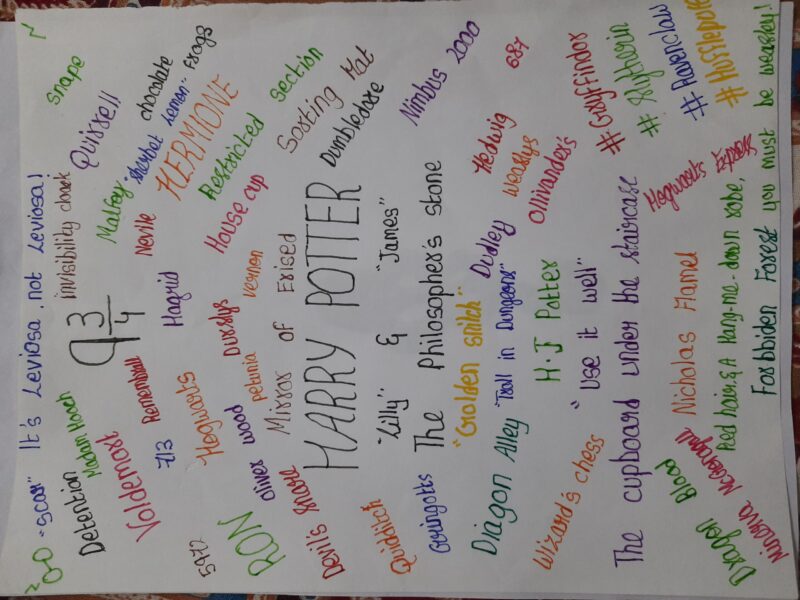 "SCAR" It's Leviosa, not Leviosa!
Detention Madam Hooch 9 3/4 invisibility cloak Snape
Voldemost Remembrall Malfoy Quissell
713 Hagrid Neville sherbet Lemon" chocolate FROGS
5972 "Hogwarts HERMIONE
RON Oliver wood Dursslys House cup Restricted section
petunia vernon
Devils snare Mirror of Erised Sosting Hat
HARRY POTTER Dumbledose
Quidditch "Lilly" & "James" Nimbus 2000
Goringotts The Philosopher's stone
"Golden snitch" Dudley Hedwig 687
Diagon Alley "Troll in Dungeons" weaslys
Wizard's chess H.J Potter Ollivanders
"Use it well" #Gryffindor
The cupboard under the staircase #Slytherin
Nicholas Flamel Hogwarts #Ravenclaw
Dragon Blood #Hufflepuff
Minerva McGonagall Red hair, & A Hang-me-down robe,
Forbbiden Forest you must be weasley!